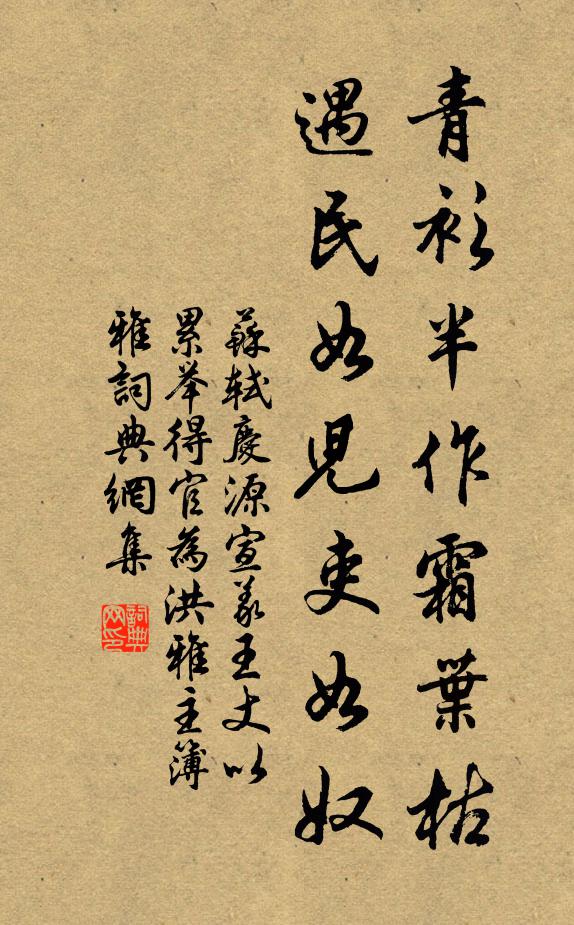 青衫半作霜葉枯
遇民如兒吏如奴
蘇軾慶源宣義王丈以
累举得官為洪雅主簿
雅詞典網集
詞典网印